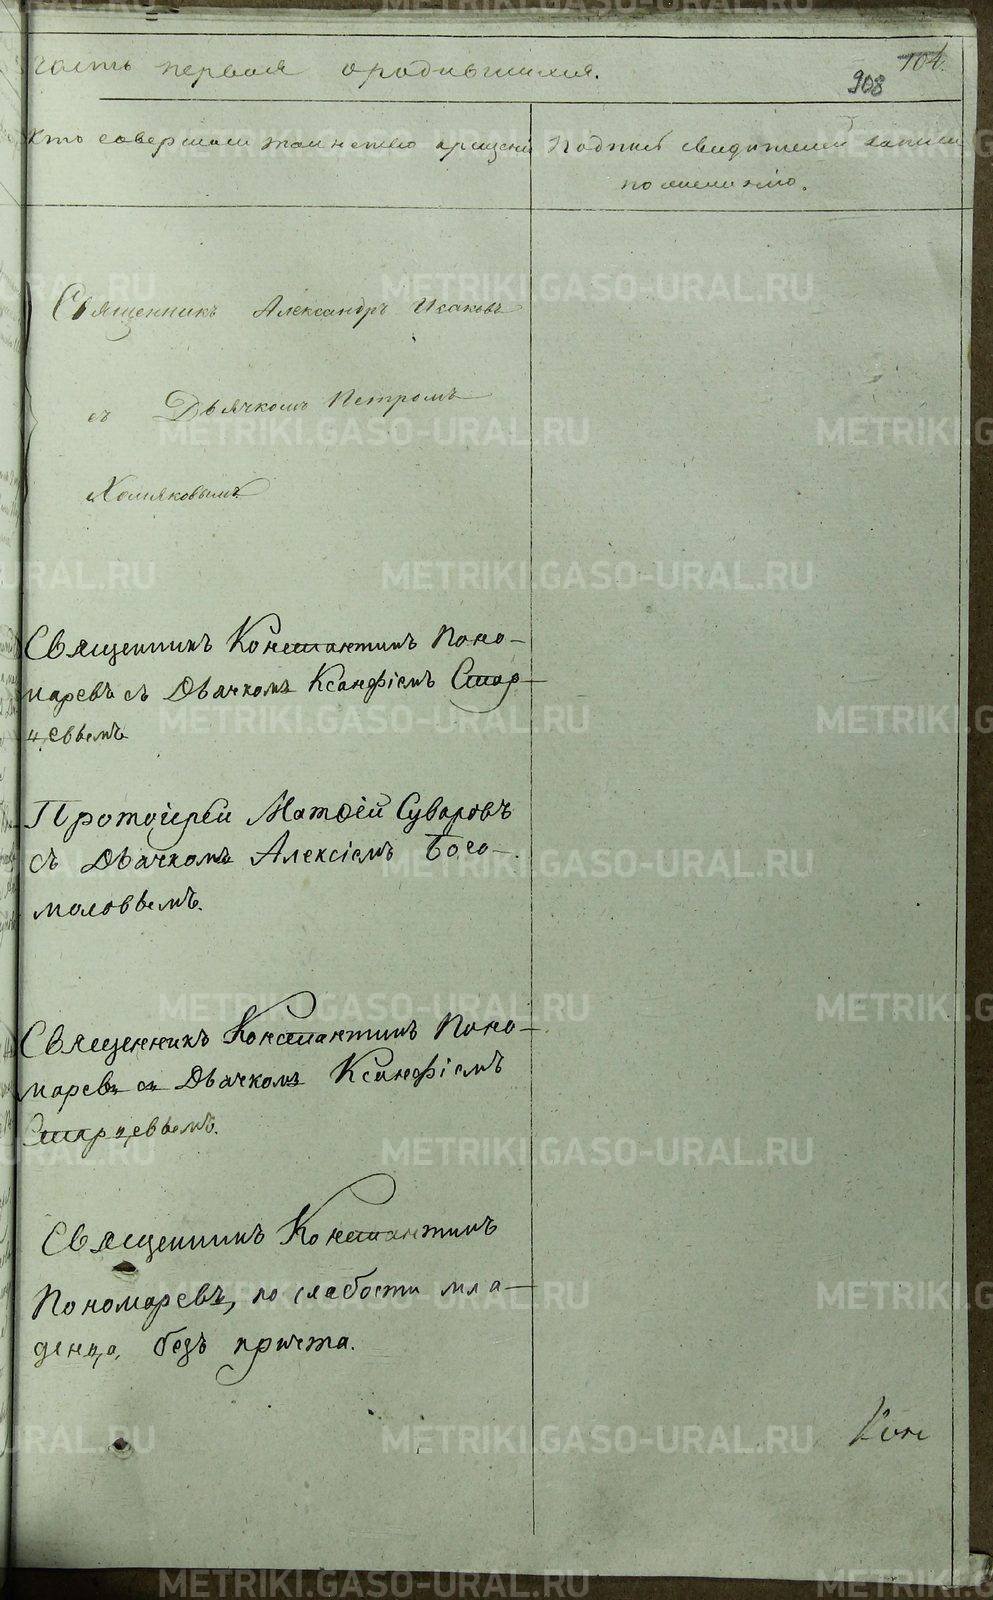 часть первая о родившихся.
104.
908
Кто совершалъ таинство крещенія
Подпись свидетелей записи
по желанію.
Священникъ Александръ Исаковъ
съ Дьячкомъ Петромъ
Хомяковымъ
Священникъ Константинъ Поно-
маревъ съ Дьячкомъ Ксанфіемъ Стар-
цевымъ
Протоіерей Матѳей Суваровъ
съ Дьячкомъ Алексіемъ Бого-
моловымъ.
Священникъ Константинъ Поно-
маревъ съ Дьячкомъ Ксанфіемъ
Старцевымъ.
Священникъ Константинъ
Пономаревъ, по слабости мла-
денца, безъ причта.
Кон
METRIKI.GASO-URAL.RU